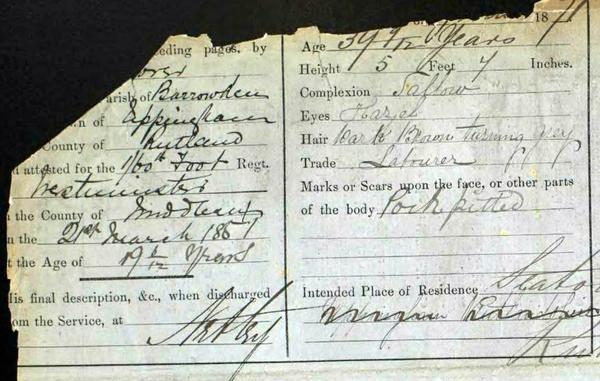 eding pages, by
arish of Barrowden
n of Uppingham
County of Rutland
attested for the 1/60th Foot Regt.
Westminster
n the County of Middlesex
n the 21st March 186
t the Age of 19 2/12 Years
His final description, &c., when discharged
om the Service, at Netley
187
Age 39 7/12 Years
Height 5 Feet 7 Inches.
Complexion Sallow
Eyes Hazel
Hair Dark Brown turning grey
Trade Labourer
Marks or Scars upon the face, or other parts
of the body Pock pitted
Intended Place of Residence Seato
Uppingham
Ru